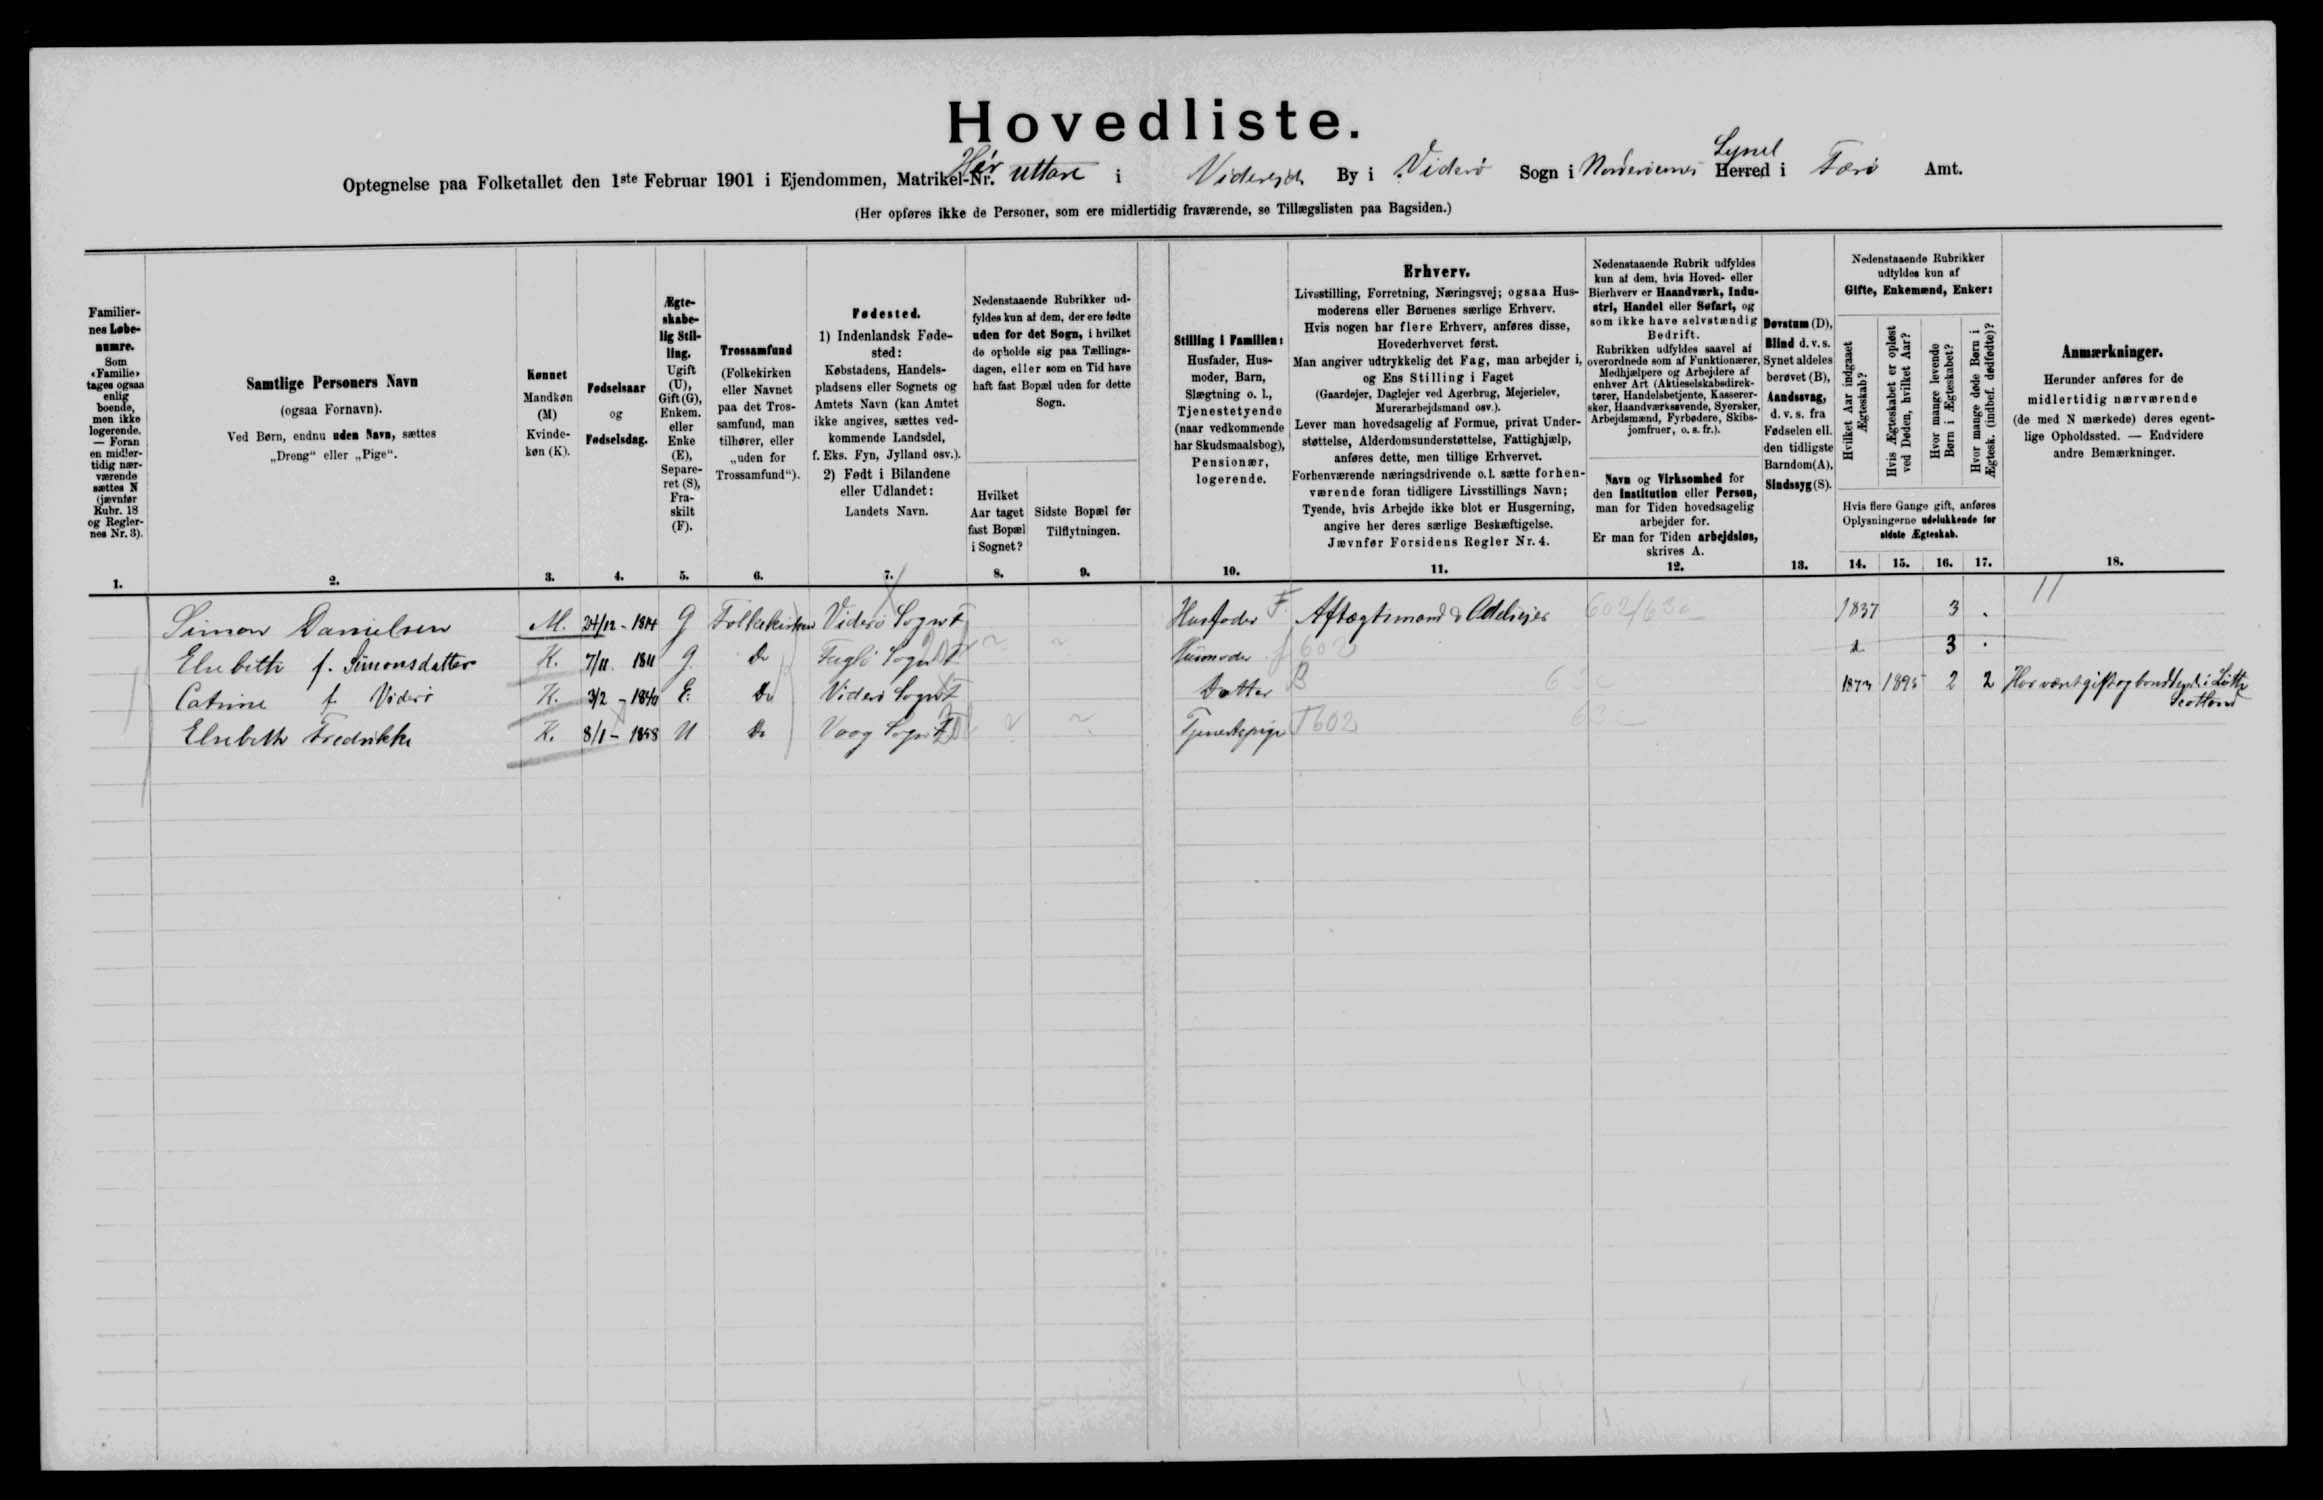 Hovedliste.
Optegnelse paa Folketallet den 1ste Februar 1901 i Ejendommen, Matrikel-Nr. uttare i Viderejde By i Viderö Sogn i Norderöernes Herred Sysel i Færö Amt.
(Her opføres ikke de Personer, som ere midlertidig fraværende, se Tillægslisten paa Bagsiden.)
Familiernes Løbenumre.
Som «Familie» tages ogsaa enlig boende, men ikke logerende. — Foran en midlertidig nærværende sættes N (jævnfør Rubr. 18 og Reglernes Nr. 3).
1.
Samtlige Personers Navn
(ogsaa Fornavn).
Ved Børn, endnu uden Navn, sættes
„Dreng“ eller „Pige“.
2.
Kønnet
Mandkøn (M)
Kvindekøn (K).
3.
Fødselsaar
og
Fødselsdag.
4.
Ægteskabelig Stilling.
Ugift (U), Gift (G), Enkem. eller Enke (E), Separeret (S), Fraskilt (F).
5.
Trossamfund
(Folkekirken eller Navnet paa det Trossamfund, man tilhører, eller „uden for Trossamfund“).
6.
Fødested.
1) Indenlandsk Fødested:
Købstadens, Handelspladsens eller Sognets og Amtets Navn (kan Amtet ikke angives, sættes vedkommende Landsdel, f. Eks. Fyn, Jylland osv.).
2) Født i Bilandene eller Udlandet:
Landets Navn.
7.
Nedenstaaende Rubrikker udfyldes kun af dem, der ere fødte uden for det Sogn, i hvilket de opholde sig paa Tællingsdagen, eller som en Tid have haft fast Bopæl uden for dette Sogn.
Hvilket Aar taget fast Bopæl i Sognet?
8.
Sidste Bopæl før Tilflytningen.
9.
Stilling i Familien:
Husfader, Husmoder, Barn, Slægtning o. l., Tjenestetyende (naar vedkommende har Skudsmaalsbog), Pensionær, logerende.
10.
Erhverv.
Livsstilling, Forretning, Næringsvej; ogsaa Husmoderens eller Børnenes særlige Erhverv.
Hvis nogen har flere Erhverv, anføres disse, Hovederhvervet først.
Man angiver udtrykkelig det Fag, man arbejder i, og Ens Stilling i Faget
(Gaardejer, Daglejer ved Agerbrug, Mejerielev, Murerarbejdsmand osv.).
Lever man hovedsagelig af Formue, privat Understøttelse, Alderdomsunderstøttelse, Fattighjælp, anføres dette, men tillige Erhvervet.
Forhenværende næringsdrivende o. l. sætte forhenværende foran tidligere Livsstillings Navn;
Tyende, hvis Arbejde ikke blot er Husgerning, angive her deres særlige Beskæftigelse.
Jævnfør Forsidens Regler Nr. 4.
11.
Nedenstaaende Rubrik udfyldes kun af dem, hvis Hoved- eller Bierhverv er Haandværk, Industri, Handel eller Søfart, og som ikke have selvstændig Bedrift.
Rubrikken udfyldes saavel af overordnede som af Funktionærer, Medhjælpere og Arbejdere af enhver Art (Aktieselskabsdirektører, Handelsbetjente, Kasserersker, Haandværkssvende, Syersker, Arbejdsmænd, Fyrbødere, Skibsjomfruer, o. s. fr.).
Navn og Virksomhed for den Institution eller Person, man for Tiden hovedsagelig arbejder for.
Er man for Tiden arbejdsløs, skrives A.
12.
Døvstum (D), Blind d. v. s. Synet aldeles berøvet (B), Aandssvag, d. v. s. fra Fødselen ell. den tidligste Barndom (A), Sindssyg (S).
13.
Nedenstaaende Rubrikker udfyldes kun af
Gifte, Enkemænd, Enker:
Hvilket Aar indgaaet Ægteskab?
Hvis Ægteskabet er opløst ved Døden, hvilket Aar?
Hvor mange levende Børn i Ægteskabet?
Hvor mange døde Børn i Ægtesk. (indbef. dødfødte)?
Hvis flere Gange gift, anføres Oplysningerne udelukkende for sidste Ægteskab.
14. 15. 16. 17.
Anmærkninger.
Herunder anføres for de midlertidig nærværende (de med N mærkede) deres egentlige Opholdssted. — Endvidere andre Bemærkninger.
18.
Simon Danielsen M. 24/12 - 1814 G Folkekirken Viderö Sogn F Husfader F. Aftægtsmand & Odelsejer 602/63a 1837 3 .
Elsebeth f. Simonsdatter K. 7/11 1811 G. Do Fuglö Sogn F Husmoder f 602 d. 3 .
Catrine f. Viderö K. 3/2 - 1840 E. Do Viderö Sogn F Datter B 1873 1895 2 2 Har været gift og bosiddende i Leith Scotland
Elsebeth Fredrikke K. 8/1 - 1858 U Do Vaag Sogn F Tjenestepige T 602